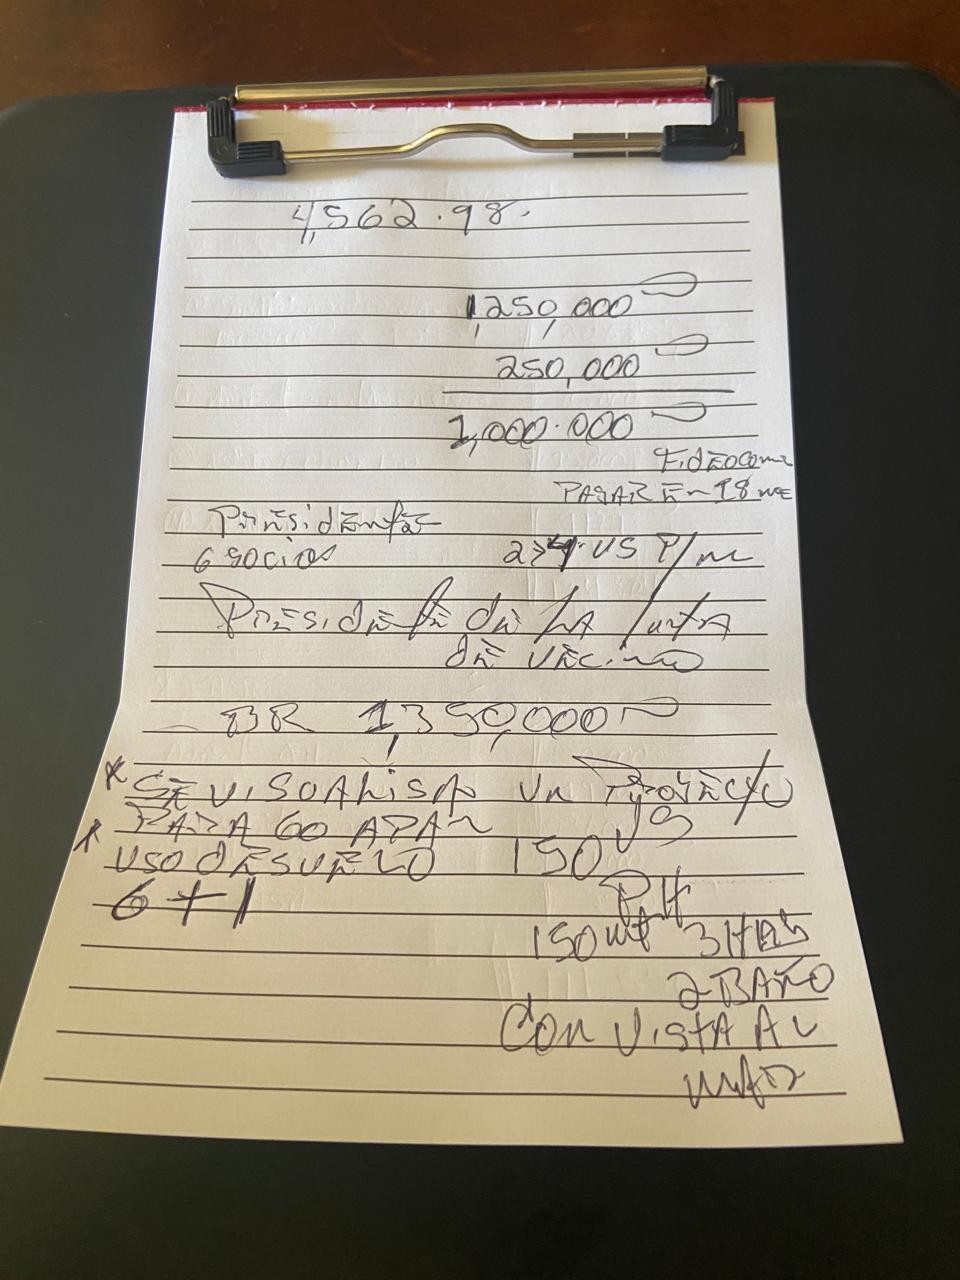 4,562.98.
1,250,000
250,000
1,000.000
PAGAR EN 18
Presidente
6 socios
US P/m
Presidente de LA Junta
de vecino
BR 1,350,000
* SE VISOALISA Un Proyecto
* PARA 60 APAR
USO DE SUELO 150 US
6 + 1 PH
150 mt 3 HABS
2 BAÑO
Con VistA AL
mar